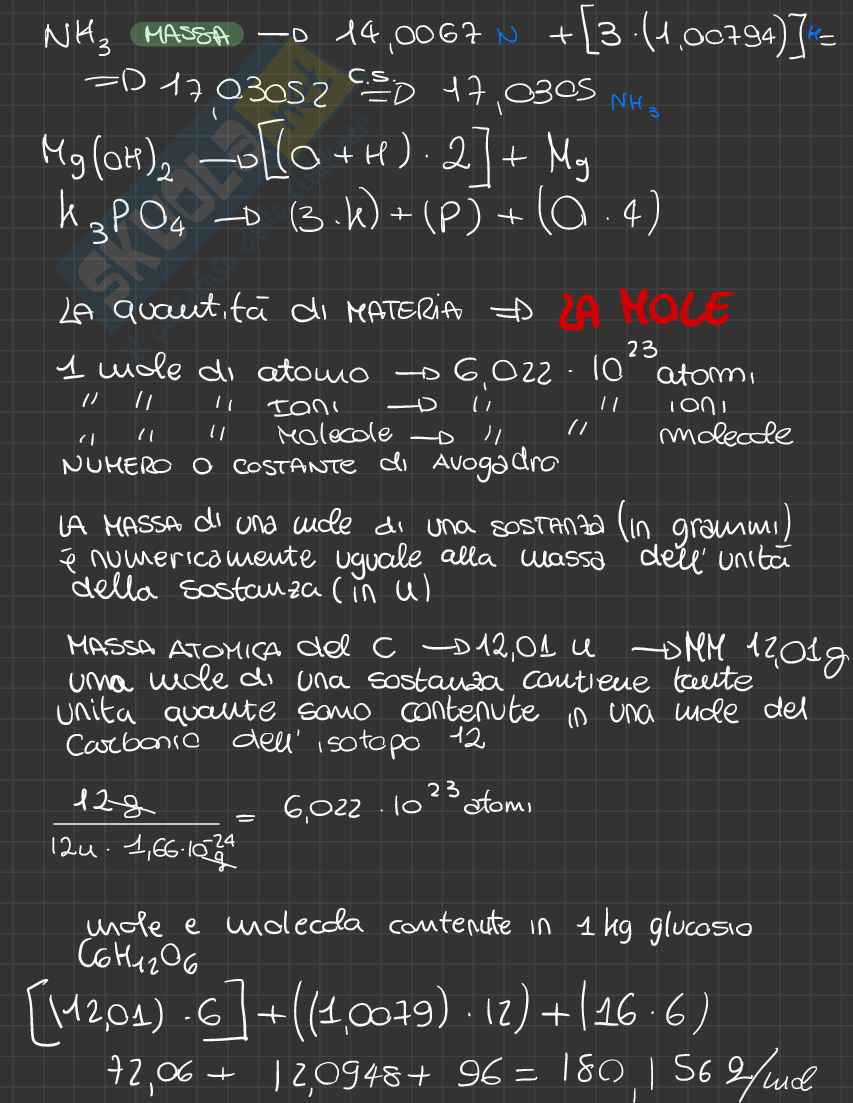 NH3 MASSA → 14,0067 N + [3 · (1,00794)] H =
=> 17,03052 C.S. => 17,0305 NH3
Mg(OH)2 → [(O + H) · 2] + Mg
K3PO4 → (3 · K) + (P) + (O · 4)
LA quantità di MATERIA => LA MOLE
1 mole di atomo → 6,022 · 10^23 atomi
" " " Ioni → " " ioni
" " " Molecole → " " molecole
NUMERO O COSTANTE di Avogadro
LA MASSA di una mole di una SOSTANZA (in grammi)
è numericamente uguale alla massa dell'unità
della sostanza (in u)
MASSA ATOMICA del C → 12,01 u → MM 12,01g
una mole di una sostanza contiene tante
unita quante sono contenute in una mole del
Carbonio dell'isotopo 12
12g / 12u · 1,66·10^-24 g = 6,022 · 10^23 atomi
mole e molecola contenute in 1 kg glucosio
C6H12O6
[(12,01) · 6] + ((1,0079) · 12) + (16 · 6)
72,06 + 12,0948 + 96 = 180,156 g/mol